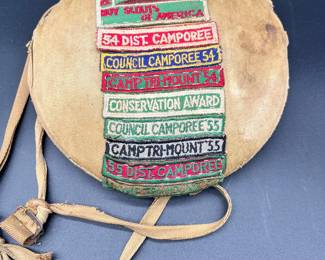 BOY SCOUTS
OF AMERICA
54 DIST. CAMPOREE
COUNCIL CAMPOREE 54
CAMP TRI-MOUNT 54
CONSERVATION AWARD
COUNCIL CAMPOREE '55
CAMP TRI-MOUNT '55
55 DIST. CAMPOREE